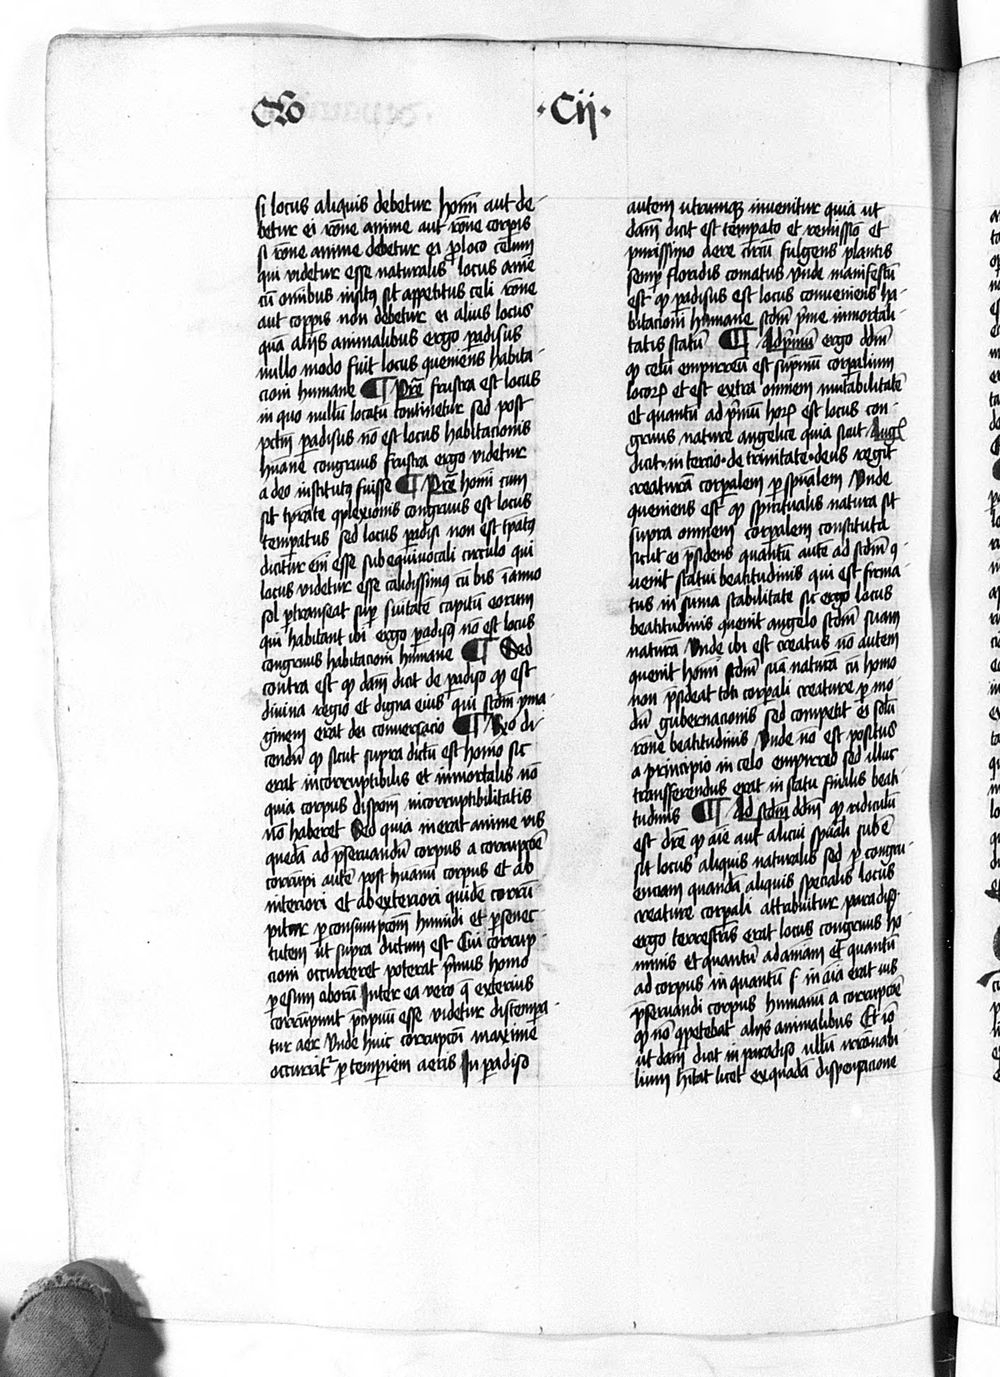 Qo
·Cij·
si locus aliquis debetur homī aut de-
betur ei rōne anime aut rōne corpīs
si rōne anime debetur ei ꝓ loco celum
qui videtur esse naturalis locus anīe
cū omībus insitꝰ sit appetitus celi rōne
aut corpīs non debetur ei alius locus
quā aliis animalibus ergo padisus
nullo modo fuit locus ꝯueniens habita-
cioni humane ¶ Prē frustra est locus
in quo nullū locatū continetur sed post
pctm̄ padisus nō est locus habitacionis
hūane congruus frustra ergo videtur
a deo institutꝰ fuisse ¶ Prē homī cum
sit tp̄rate ꝯplexionis congruus est locus
temperatus sed locus padisi non est tp̄atꝰ
dicitur em̄ esse sub equīuocali circulo qui
locus videtur esse calidissimꝰ cū bis ī anno
sol ptranseat suꝑ sūitatē capitū eorum
qui habitant ibi ergo padisꝰ nō est locus
congruus habitacioni humane ¶ Sed
contra est qꝫ dam̄ dicit de padiso qꝫ est
diuina regio et digna eius qui scdm̄ yma-
ginem erat dei conuersacio ¶ Rō di-
cendū qꝫ sicut supra dictū est homo sic
erat incorruptibilis et immortalis nō
quia corpus disponī incorruptibilitatis
nō haberet Sed quia inerat anime vis
quedā ad p̄seruandū corpus a corrupcōe
corrūpi autē post hūanū corpus et ab
interiori et ab exteriori quidē corrū-
pitur ꝑ consumpcōm humidi et ꝑ senec-
tutem ut supra dictum est Cui corrup-
cioni occurrere poterat pīmus homo
ꝑ esum ciborū Inter ea vero q̄ exterius
corrūpunt p̄cipuū esse videtur distempa-
tur aer Unde huic corrupcōi maxime
occurrit ꝑ temperiem aeris In padiso
autem utrumqꝫ inuenitur quia ut
dam̄ dicit est temꝑato et remissiō et
purissimo aere circū fulgens plantis
semꝑ floridis comatus Unde manifestū
est qꝫ padisus est locus conueniens ha-
bitacioni humane scdm̄ pīme inmortali-
tatis statū ¶ Ad pīmū ergo ddm̄
qꝫ celū empirreū est supīmū corpalium
locorꝝ et est extra omnem mutabilitatē
et quantū ad pīmū horꝝ est locus con-
gruus nature angelice quia sicut Augꝰ
dicit·in tercio·de trinitate·deus regit
creaturā corpalem ꝑ spūalem Unde
ꝯueniens est qꝫ spiritualis natura sit
supra omnem corpalem constituta
sicut ei p̄sidens quantū autē ad scdm̄ ꝯ-
uenit statui beatitudinis qui est firma-
tus in sūma stabilitate sic ergo locus
beatitudinis ꝯuenit angelo scdm̄ suam
naturā Unde ibi est creatus nō autem
ꝯuenit homī scdm̄ suā naturā cū homo
non p̄sideat toti corpali creature ꝑ mo-
dū gubernacionis sed competit ei solū
rōne beatitudinis Unde nō est positus
a principio in celo empirreo sed illuc
transferendus erat in statu finalis beati-
tudinis ¶ Ad scdm̄ ddm̄ qꝫ ridiculū
est dicē qꝫ aīe aut alicui spūali sub'ē
sit locus aliquis naturalis sed ꝑ congru-
enciam quandā aliquis specialis locus
creature corpali attribuitur paradisꝰ
ergo terrestris erat locus congruus ho-
minis et quantū ad animam et quantū
ad corpus in quantū sꝫ in aīa erat uis
p̄seruandi corpus humanū a corrupcōe
qꝫ nō ꝯpetebat aliis animalibus Et iō
ut dam̄ dicit in paradiso nullū irrōnabi-
lium hītat licet ex quadā dispensacione